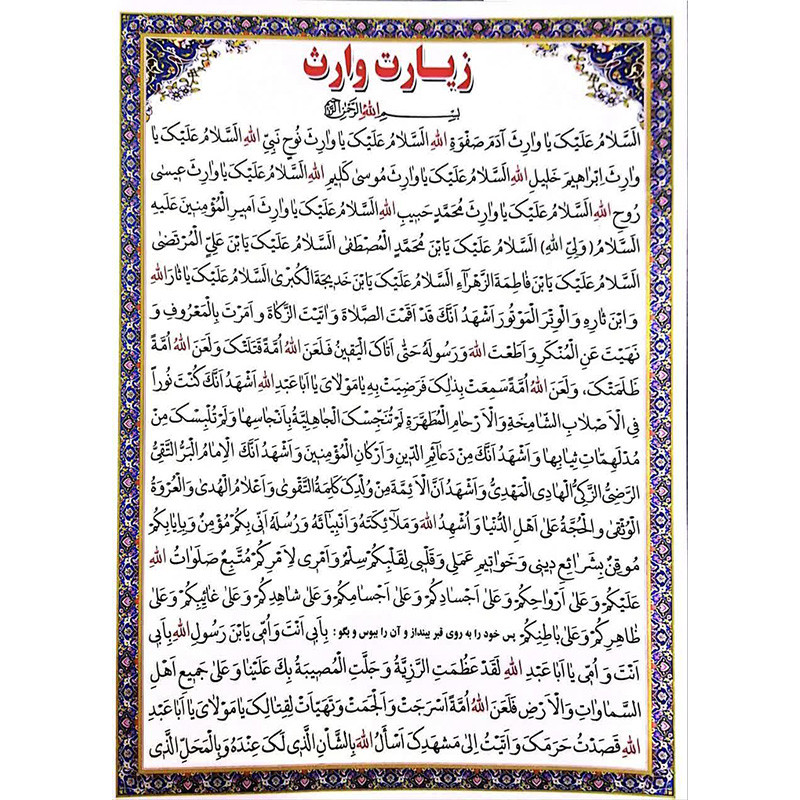 زیارت وارث
بِسْمِ اللهِ الرَّحْمٰنِ الرَّحیمِ
اَلسَّلامُ عَلَیْکَ یا وارِثَ آدَمَ صَفْوَةِ اللهِ اَلسَّلامُ عَلَیْکَ یا وارِثَ نُوحٍ نَبِیِّ اللهِ اَلسَّلامُ عَلَیْکَ یا
وارِثَ اِبْراهیمَ خَلیلِ اللهِ اَلسَّلامُ عَلَیْکَ یا وارِثَ مُوسی کَلیمِ اللهِ اَلسَّلامُ عَلَیْکَ یا وارِثَ عیسی
رُوحِ اللهِ اَلسَّلامُ عَلَیْکَ یا وارِثَ مُحَمَّدٍ حَبیبِ اللهِ اَلسَّلامُ عَلَیْکَ یا وارِثَ اَمیرِ الْمُؤْمِنینَ عَلَیْهِ
السَّلامُ (وَلِیِّ اللهِ) اَلسَّلامُ عَلَیْکَ یَابْنَ مُحَمَّدٍ الْمُصْطَفی اَلسَّلامُ عَلَیْکَ یَابْنَ عَلِیٍّ الْمُرْتَضی
اَلسَّلامُ عَلَیْکَ یَابْنَ فاطِمَةَ الزَّهْرآءِ اَلسَّلامُ عَلَیْکَ یَابْنَ خَدیجَةَ الْکُبْری اَلسَّلامُ عَلَیْکَ یا ثارَ اللهِ
وَ ابْنَ ثارِهِ وَ الْوِتْرَ الْمَوْتُورَ اَشْهَدُ اَنَّکَ قَدْ اَقَمْتَ الصَّلاةَ وَ اتَیْتَ الزَّکاةَ وَ اَمَرْتَ بِالْمَعْرُوفِ وَ
نَهَیْتَ عَنِ الْمُنْکَرِ وَ اَطَعْتَ اللهَ وَ رَسُولَهُ حَتّی اَتاکَ الْیَقینُ فَلَعَنَ اللهُ اُمَّةً قَتَلَتْکَ وَ لَعَنَ اللهُ اُمَّةً
ظَلَمَتْکَ، وَ لَعَنَ اللهُ اُمَّةً سَمِعَتْ بِذلِکَ فَرَضِیَتْ بِهِ یا مَوْلایَ یا اَبا عَبْدِ اللهِ اَشْهَدُ اَنَّکَ کُنْتَ نُوراً
فِی الْاَصْلابِ الشّامِخَةِ وَ الْاَرْحامِ الْمُطَهَّرَةِ لَمْ تُنَجِّسْکَ الْجاهِلِیَّةُ بِاَنْجاسِها وَ لَمْ تُلْبِسْکَ مِنْ
مُدْلَهِمّاتِ ثِیابِها وَ اَشْهَدُ اَنَّکَ مِنْ دَعائِمِ الدّینِ وَ اَرْکانِ الْمُؤْمِنینَ وَ اَشْهَدُ اَنَّکَ الْاِمامُ الْبَرُّ التَّقِیُّ
الرَّضِیُّ الزَّکِیُّ الْهادِی الْمَهْدِیُّ وَ اَشْهَدُ اَنَّ الْاَئِمَّةَ مِنْ وُلْدِکَ کَلِمَةُ التَّقْوی وَ اَعْلامُ الْهُدی وَ الْعُرْوَةُ
الْوُثْقی وَ الْحُجَّةُ عَلی اَهْلِ الدُّنْیا وَ اُشْهِدُ اللهَ وَ مَلآئِکَتَهُ وَ اَنْبِیآئَهُ وَ رُسُلَهُ اَنّی بِکُمْ مُؤْمِنٌ وَ بِاِیابِکُمْ
مُوقِنٌ بِشَرائِعِ دینی وَ خَواتیمِ عَمَلی وَ قَلْبی لِقَلْبِکُمْ سِلْمٌ وَ اَمْری لِاَمْرِکُمْ مُتَّبِعٌ صَلَواتُ اللهِ
عَلَیْکُمْ وَ عَلی اَرْواحِکُمْ وَ عَلی اَجْسادِکُمْ وَ عَلی اَجْسامِکُمْ وَ عَلی شاهِدِکُمْ وَ عَلی غائِبِکُمْ وَ عَلی
ظاهِرِکُمْ وَ عَلی باطِنِکُمْ پس خود را به روی قبر بینداز و آن را ببوس و بگو : بِاَبی اَنْتَ وَ اُمّی یَابْنَ رَسُولِ اللهِ بِاَبی
اَنْتَ وَ اُمّی یا اَبا عَبْدِ اللهِ لَقَدْ عَظُمَتِ الرَّزِیَّةُ وَ جَلَّتِ الْمُصیبَةُ بِكَ عَلَیْنا وَ عَلی جَمیعِ اَهْلِ
السَّماواتِ وَ الْاَرْضِ فَلَعَنَ اللهُ اُمَّةً اَسْرَجَتْ وَ اَلْجَمَتْ وَ تَهَیَّاَتْ لِقِتالِکَ یا مَوْلایَ یا اَبا عَبْدِ
اللهِ قَصَدْتُ حَرَمَکَ وَ اَتَیْتُ اِلی مَشْهَدِکَ اَسْاَلُ اللهَ بِالشَّاْنِ الَّذی لَکَ عِنْدَهُ وَ بِالْمَحَلِّ الَّذی